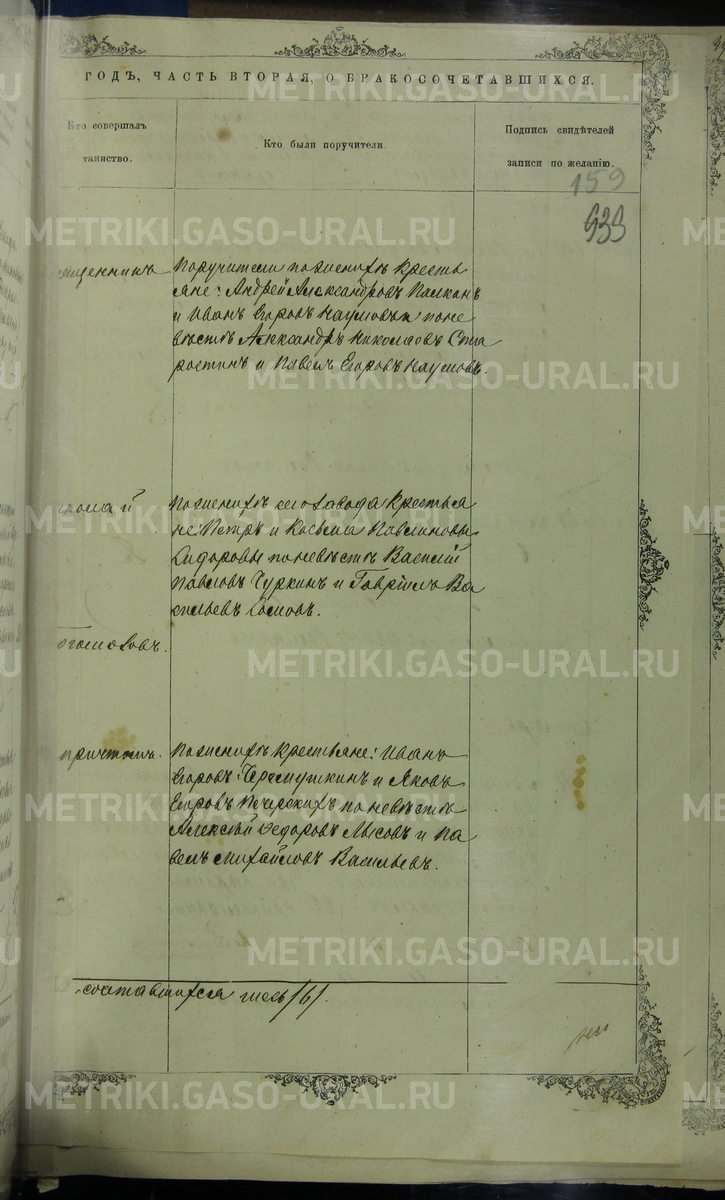 ГОДЪ, ЧАСТЬ ВТОРАЯ, О БРАКОСОЧЕТАВШИХСЯ.
Кто совершалъ таинство.
Кто были поручители.
Подпись свидѣтелей записи по желанію.
159
933
Поручители по женихѣ Кресть
яне: Андрей Александровъ Палкинъ
и Иванъ Егоровъ Наумовъ, по не
вѣстѣ Александръ Николаевъ Ста
ростинъ и Павелъ Егоровъ Наумовъ.
По женихѣ сего завода Крестья
не: Петръ и Косьма Павлиновы
Сидоровы по невѣстѣ Василій
Павловъ Чуркинъ и Гавріилъ Ва
сильевъ Сомовъ.
По женихѣ Крестьяне: Иванъ
Егоровъ Черемушкинъ и Яковъ
Егоровъ Печерскихъ по невѣстѣ
Алексѣй Ѳедоровъ Лысовъ и Па
велъ Михайловъ Васильевъ.
причтомъ.
METRIKI.GASO-URAL.RU